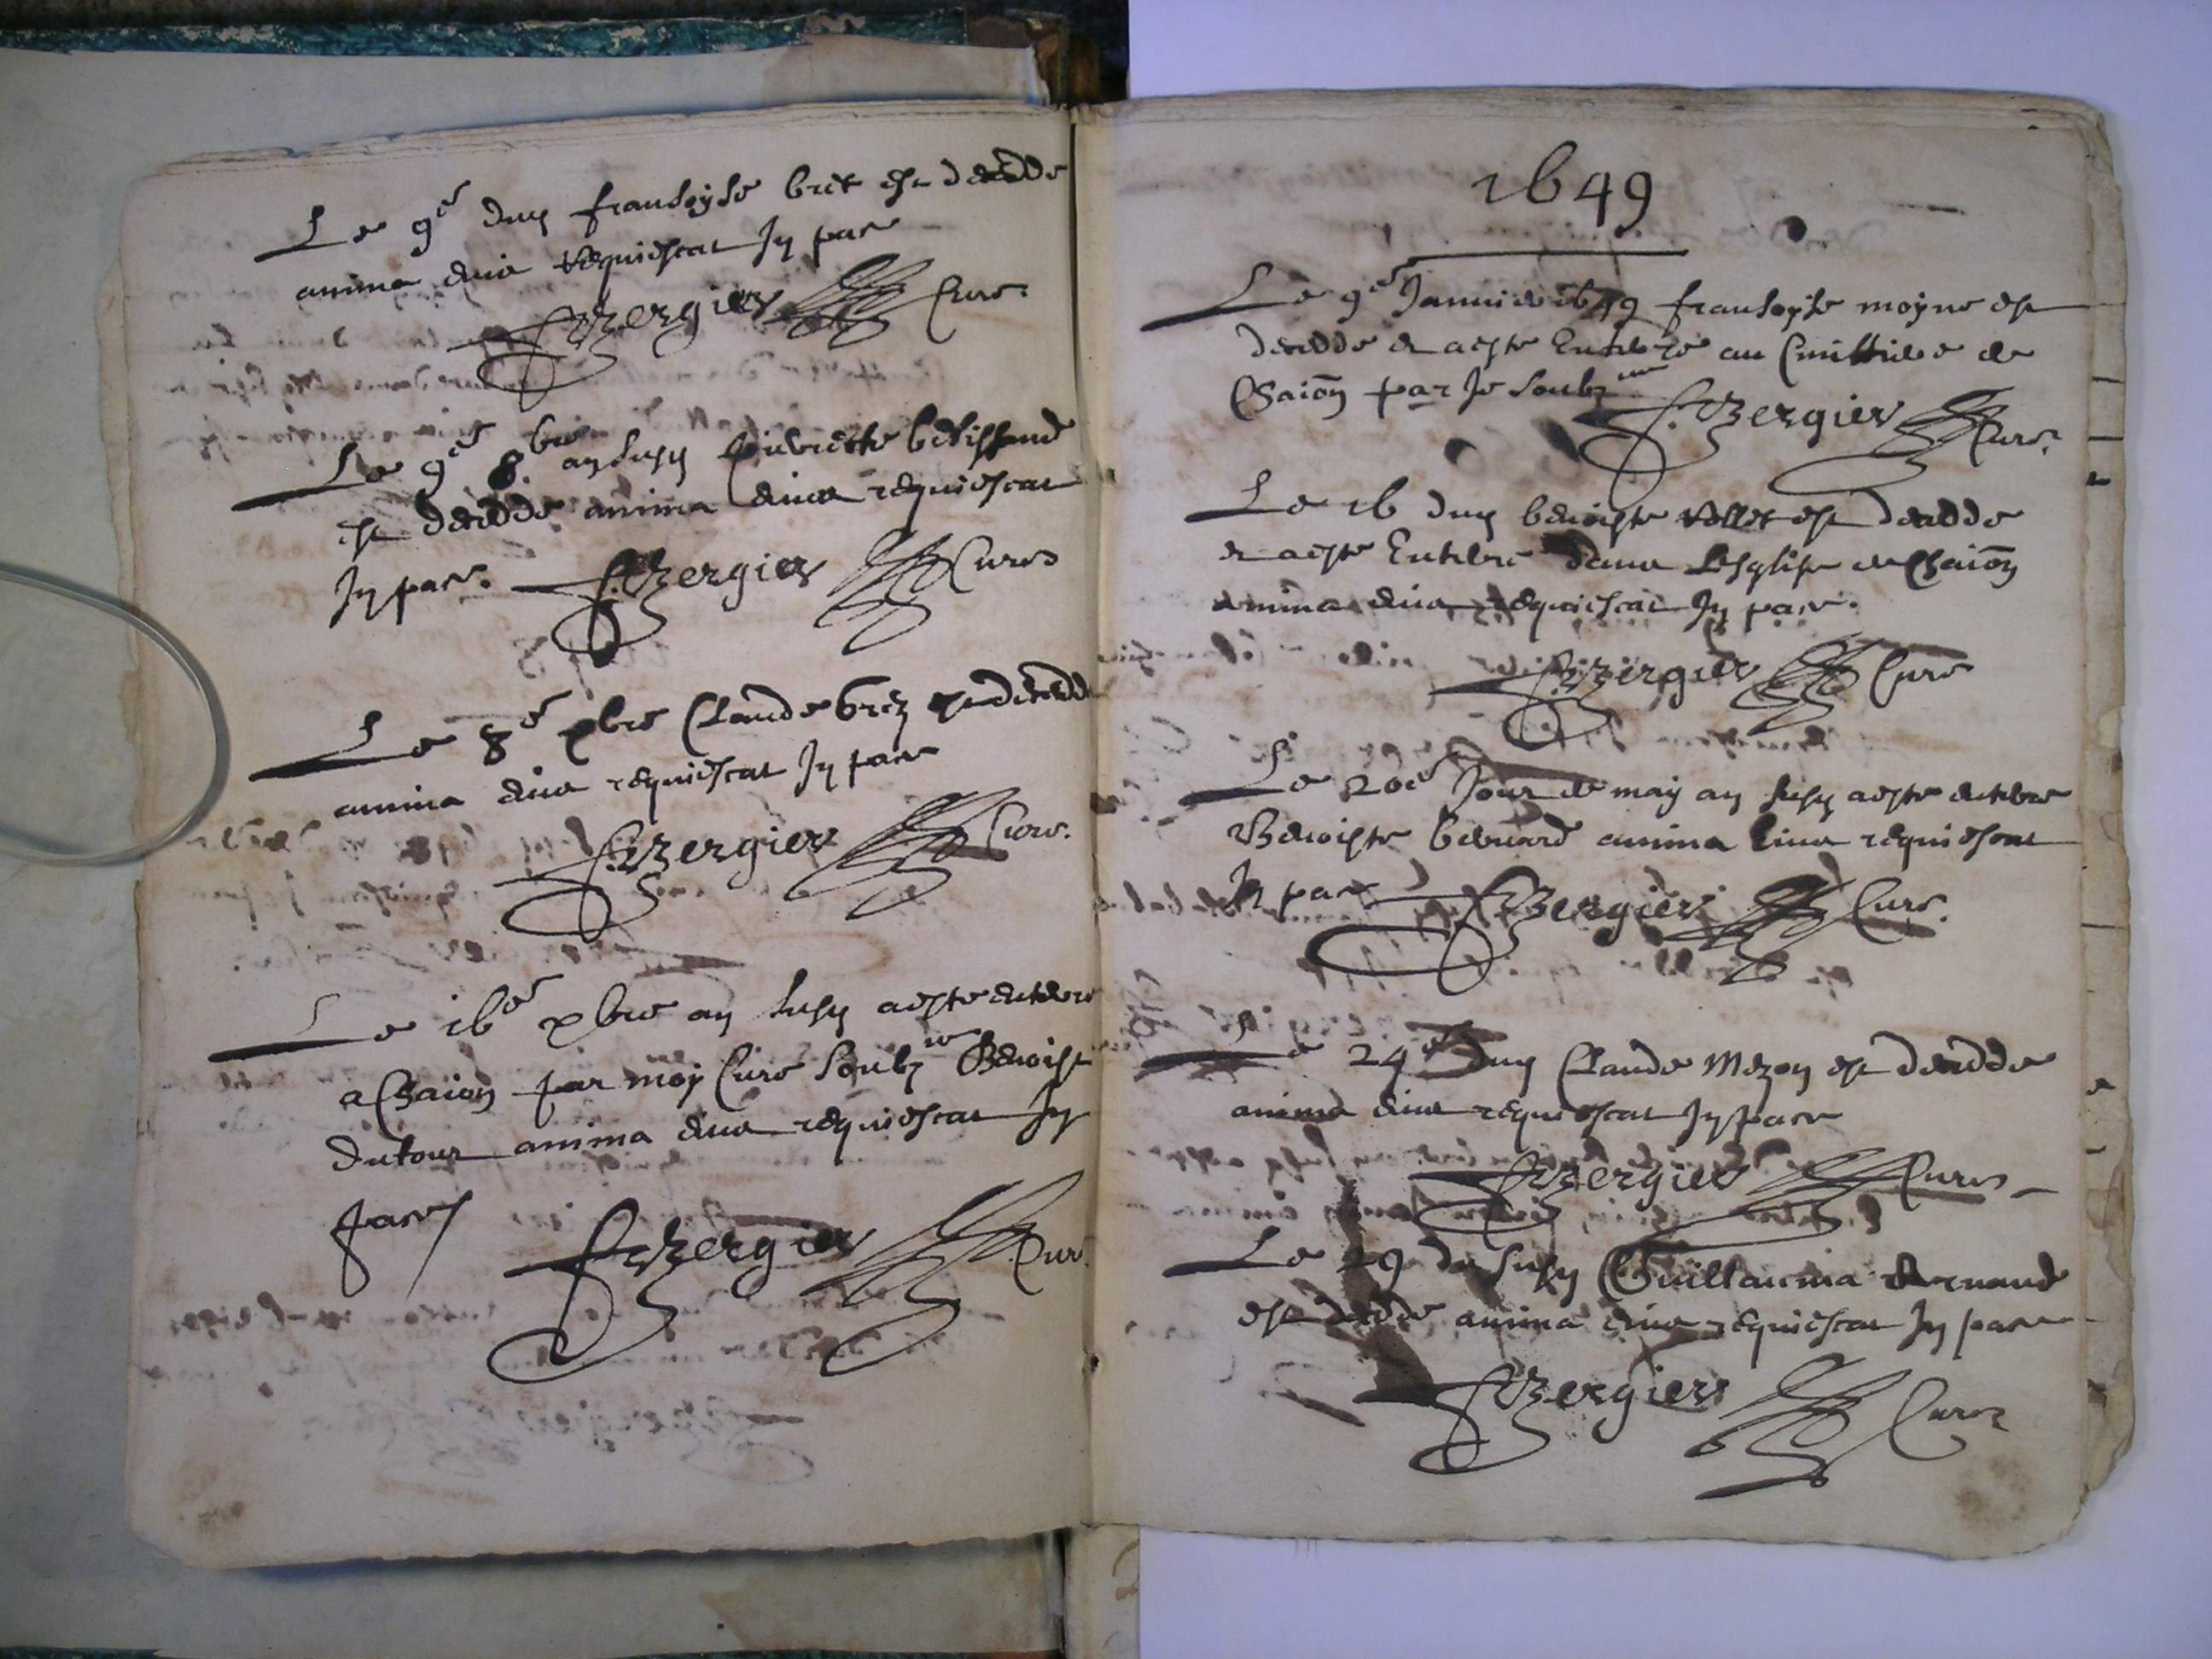 Le 9e dud fransoyse bret est decedde
anima eius requiescat In pace
Bergier Cure
Le 9e 8bre an susd pierrette
est decedde anima eius requiescat
In pace. Bergier Cure
Le 8e xbre Claude brez est decedde
anima eius requiescat In pace
Bergier Cure.
Le 16e xbre an susd a este enterre
a Chaion par moy Cure soubzne Benoist
Dutour anima eius requiescat In
pace
Bergier Cure
1649
Le 9e Januie 1649 fransoyse moyne est
decedde et a este Enterre au Cimittiere de
Chaion par Je soubzne
Bergier Cure
Le 16 dud benoiste vollet est decedde
et a este Enterre dans Lesglise de Chaion
anima eius requiescat In pace.
Bergier Cure
Le 20e Jour de may an susd a este enterre
Benoiste bernard anima eius requiescat
In pace Bergier Cure.
Le 24e dud Claude Mezon est decedde
anima eius requiescat In pace
Bergier Cure
Le 29 du susd Guillauma
est decede anima eius requiescat In pace
Bergier Cure